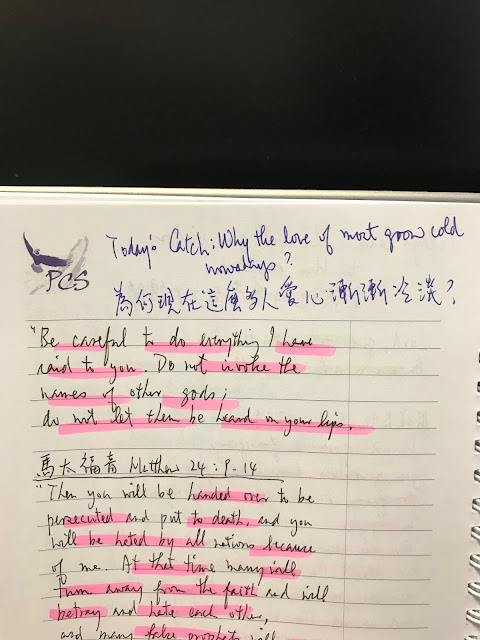 PCS
Today's Catch: Why the love of most grow cold
nowadays?
為何現在這麼多人愛心漸漸冷淡?
"Be careful to do everything I have
said to you. Do not invoke the
names of other gods;
do not let them be heard on your lips.
馬太福音 Matthew 24:9-14
"Then you will be handed over to be
persecuted and put to death, and you
will be hated by all nations because
of me. At that time many will
turn away from the faith and will
betray and hate each other,
and many false prophets will